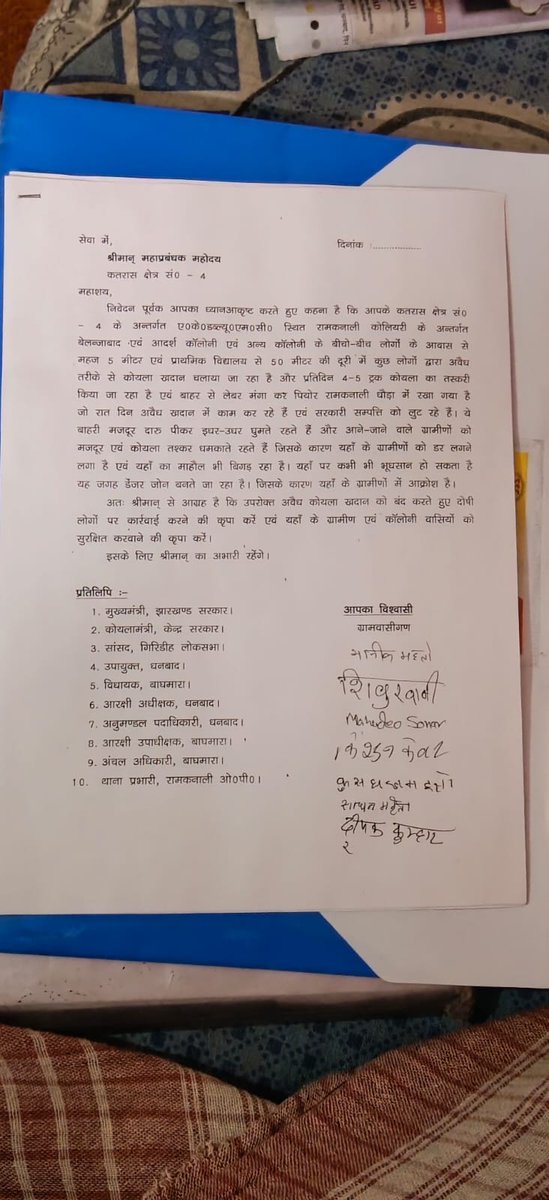 सेवा में,
दिनांक :...................
श्रीमान् महाप्रबंधक महोदय
कतरास क्षेत्र सं0 - 4
महाशय,
निवेदन पूर्वक आपका ध्यानआकृष्ट करते हुए कहना है कि आपके कतरास क्षेत्र सं0
- 4 के अन्तर्गत ए0के0डब्ल्यू0एम0सी0 स्थित रामकनाली कोलियरी के अन्तर्गत
बेलन्जाबाद एवं आदर्श कॉलोनी एवं अन्य कॉलोनी के बीचो-बीच लोगों के आवास से
महज 5 मीटर एवं प्राथमिक विद्यालय से 50 मीटर की दूरी में कुछ लोगों द्वारा अवैध
तरीके से कोयला खदान चलाया जा रहा है और प्रतिदिन 4-5 ट्रक कोयला का तस्करी
किया जा रहा है एवं बाहर से लेबर मंगा कर पियोर रामकनाली धौड़ा में रखा गया है
जो रात दिन अवैध खदान में काम कर रहे हैं एवं सरकारी सम्पत्ति को लुट रहे है। ये
बाहरी मजदूर दारु पीकर इधर-उधर घुमते रहते हैं और आने-जाने वाले ग्रामीणों को
मजदूर एवं कोयला तश्कर धमकाते रहते हैं जिसके कारण यहाँ के ग्रामीणों को डर लगने
लगा है एवं यहाँ का माहौल भी बिगड़ रहा है। यहाँ पर कभी भी भूधसान हो सकता है
यह जगह डेंजर जोन बनते जा रहा है। जिसके कारण यहाँ के ग्रामीणों में आक्रोश है।
अतः श्रीमान् से आग्रह है कि उपरोक्त अवैध कोयला खदान को बंद करते हुए दोषी
लोगों पर कार्रवाई करने की कृपा करें एवं यहाँ के ग्रामीण एवं कॉलोनी वासियों को
सुरक्षित करवाने की कृपा करें।
इसके लिए श्रीमान् का अभारी रहेंगे।
प्रतिलिपि :-
1. मुख्यमंत्री, झारखण्ड सरकार।
2. कोयलामंत्री, केन्द्र सरकार।
3. सांसद, गिरिडीह लोकसभा।
4. उपायुक्त, धनबाद।
5. विधायक, बाघमारा।
6. आरक्षी अधीक्षक, धनबाद।
7. अनुमण्डल पदाधिकारी, धनबाद।
8. आरक्षी उपाधीक्षक, बाघमारा।
9. अंचल अधिकारी, बाघमारा।
10. थाना प्रभारी, रामकनाली ओ0पी0।
आपका विश्वासी
ग्रामवासीगण
महतो
Mahadeo Sonar
दीपक कुम्हार